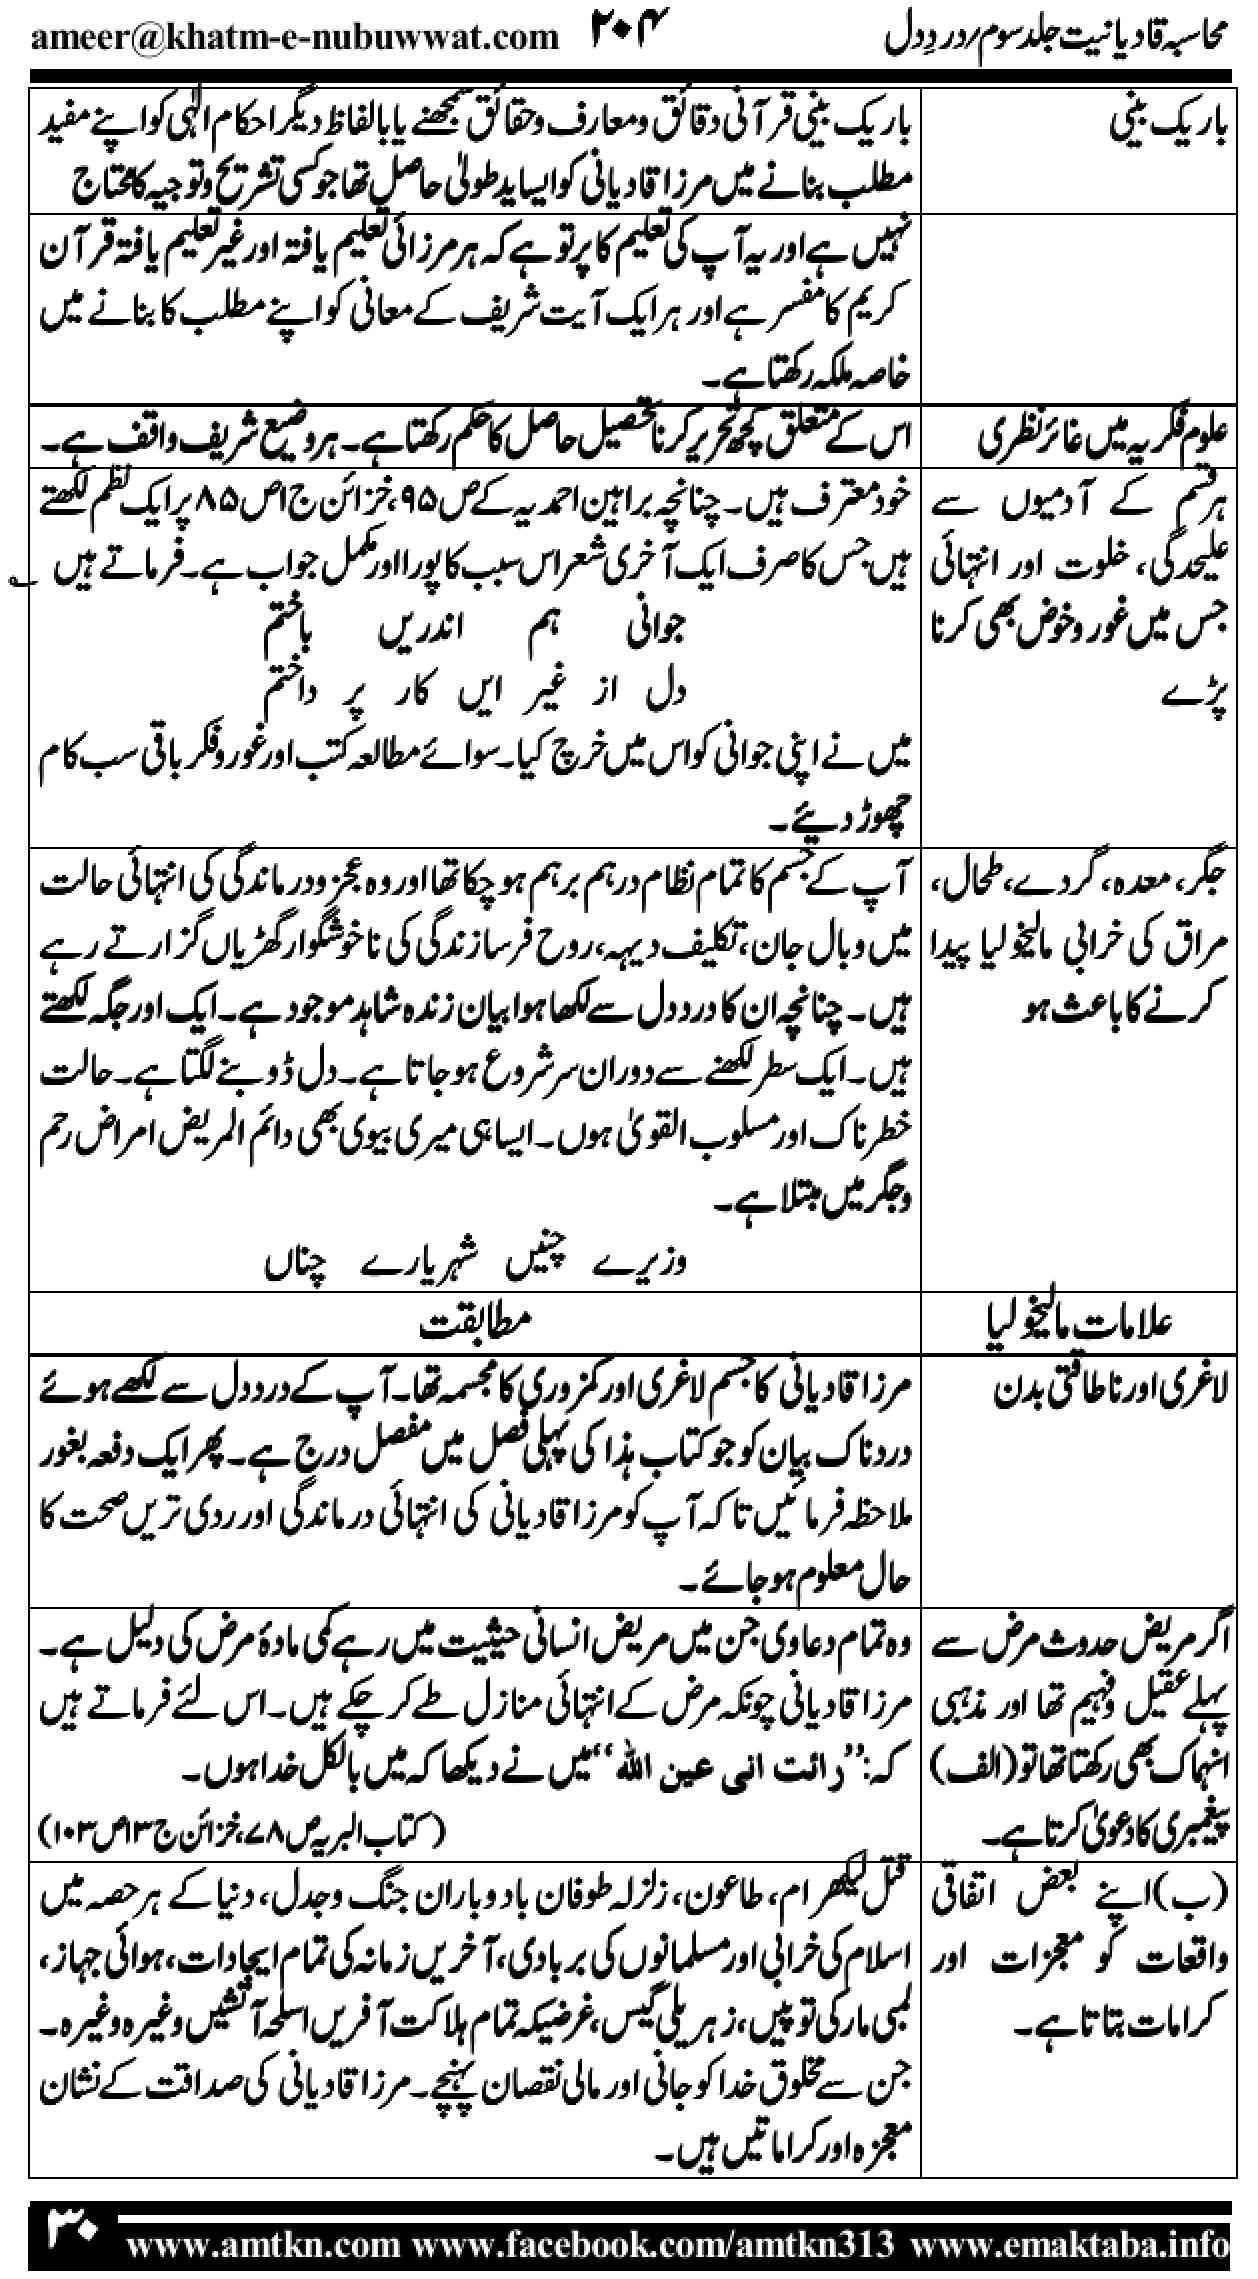 محاسبہ قادیانیت جلد سوم ؍ دردِ دل ۲۰۴ ameer@khatm-e-nubuwwat.com
باریک بینی
باریک بینی قرآنی دقائق ومعارف وحقائق سمجھنے یا بالفاظ دیگر احکام الٰہی کو اپنے مفید
مطلب بنانے میں مرزا قادیانی کو ایسا ید طولیٰ حاصل تھا جو کسی تشریح وتوجیہ کا محتاج
نہیں ہے اور یہ آپ کی تعلیم کا پرتو ہے کہ ہر مرزائی تعلیم یافتہ اور غیر تعلیم یافتہ قرآن
کریم کا مفسر ہے اور ہر ایک آیت شریف کے معانی کو اپنے مطلب کا بنانے میں
خاصہ ملکہ رکھتا ہے۔
علوم فکریہ میں غائر نظری
اس کے متعلق کچھ تحریر کرنا تحصیل حاصل کا حکم رکھتا ہے۔ ہر وضیع شریف واقف ہے۔
ہر قسم کے آدمیوں سے
علیحدگی، خلوت اور انتہائی
جس میں غور وخوض بھی کرنا
پڑے
خود معترف ہیں۔ چنانچہ براہین احمدیہ کے ص۹۵، خزائن ج۱ص۸۵ پر ایک نظم لکھتے
ہیں جس کا صرف ایک آخری شعر اس سبب کا پورا اور مکمل جواب ہے۔ فرماتے ہیں ؎
جوانی ہم اندریں باختم
دل از غیر ایں کار پر داختم
میں نے اپنی جوانی کو اس میں خرچ کیا۔ سوائے مطالعہ کتب اور غور وفکر باقی سب کام
چھوڑ دیئے۔
جگر، معدہ، گردے، طحال،
مراق کی خرابی مالیخولیا پیدا
کرنے کا باعث ہو
آپ کے جسم کا تمام نظام درہم برہم ہوچکا تھا اور وہ عجز ودرماندگی کی انتہائی حالت
میں وبال جان، تکلیف دیہہ، روح فرسا زندگی کی ناخوشگوار گھڑیاں گزارتے رہے
ہیں۔ چنانچہ ان کا درد دل سے لکھا ہوا بیان زندہ شاہد موجود ہے۔ ایک اور جگہ لکھتے
ہیں۔ ایک سطر لکھنے سے دوران سر شروع ہو جاتا ہے۔ دل ڈوبنے لگتا ہے۔ حالت
خطرناک اور مسلوب القویٰ ہوں۔ ایسا ہی میری بیوی بھی دائم المریض امراض رحم
وجگر میں مبتلا ہے۔
وزیرے چنیں شہریارے چناں
علامات مالیخولیا
مطابقت
لاغری اور ناطاقتی بدن
مرزا قادیانی کا جسم لاغری اور کمزوری کا مجسمہ تھا۔ آپ کے درد دل سے لکھے ہوئے
دردناک بیان کو جو کتاب ہذا کی پہلی فصل میں مفصل درج ہے۔ پھر ایک دفعہ بغور
ملاحظہ فرمائیں تاکہ آپ کو مرزا قادیانی کی انتہائی درماندگی اور ردی ترین صحت کا
حال معلوم ہو جائے۔
اگر مریض حدوث مرض سے
پہلے عقیل وفہیم تھا اور مذہبی
انہماک بھی رکھتا تھا تو (الف)
پیغمبری کا دعویٰ کرتا ہے۔
وہ تمام دعاوی جن میں مریض انسانی حیثیت میں رہے کمی مادۂ مرض کی دلیل ہے۔
مرزا قادیانی چونکہ مرض کے انتہائی منازل طے کر چکے ہیں۔ اس لئے فرماتے ہیں
کہ: ’’رائت انی عین اللہ‘‘ میں نے دیکھا کہ میں بالکل خدا ہوں۔
(کتاب البریہ ص۷۸، خزائن ج۱۳ص۱۰۳)
(ب) اپنے بعض اتفاقی
واقعات کو معجزات اور
کرامات بتاتا ہے۔
قتل لیکھرام، طاعون، زلزلہ طوفان بادوباران جنگ وجدل، دنیا کے ہر حصہ میں
اسلام کی خرابی اور مسلمانوں کی بربادی، آخریں زمانہ کی تمام ایجادات، ہوائی جہاز،
لمبی مار کی توپیں، زہریلی گیس، غرضیکہ تمام ہلاکت آفریں اسلحہ آتشیں وغیرہ وغیرہ۔
جن سے مخلوق خدا کو جانی اور مالی نقصان پہنچے۔ مرزا قادیانی کی صداقت کے نشان
معجزہ اور کراماتیں ہیں۔
۳۰ www.amtkn.com www.facebook.com/amtkn313 www.emaktaba.info